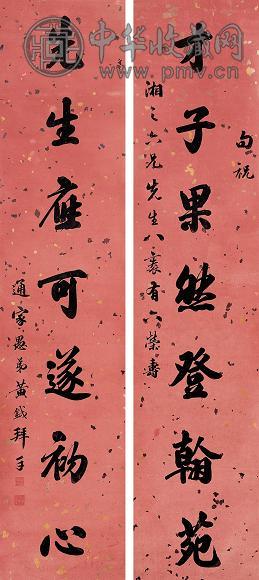 中华收藏网
www.pmv.cn
句祝
才子果然登翰苑
湘之六兄先生八袠有六荣壽
先生应可遂初心
通家愚弟黄钺拜手